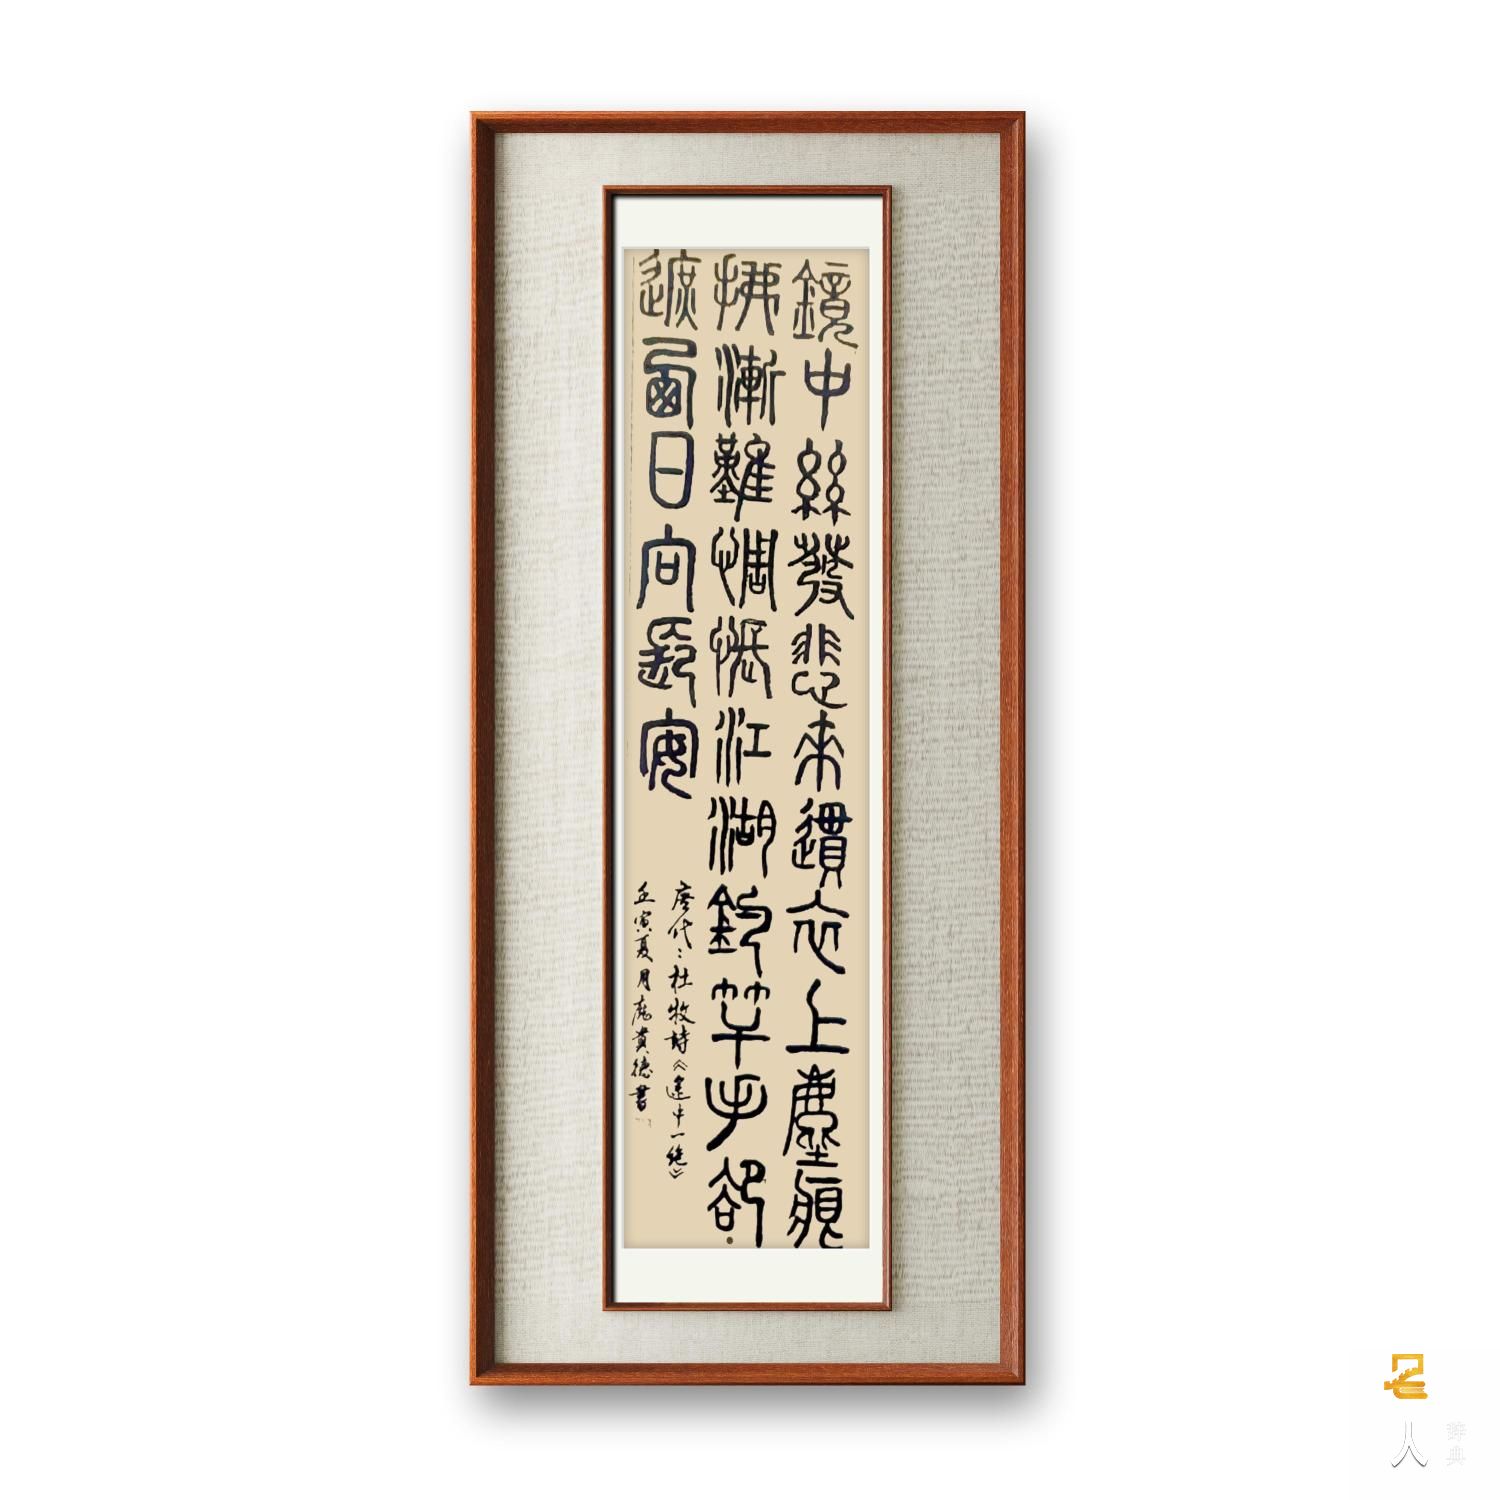 鏡中絲發悲來遦衣上塵痕
拂漸難惆悵江湖釣竿手卻
遮西日向長安
唐代：杜牧詩《途中一绝》
壬寅夏月庞貴德書
名
人
辞典